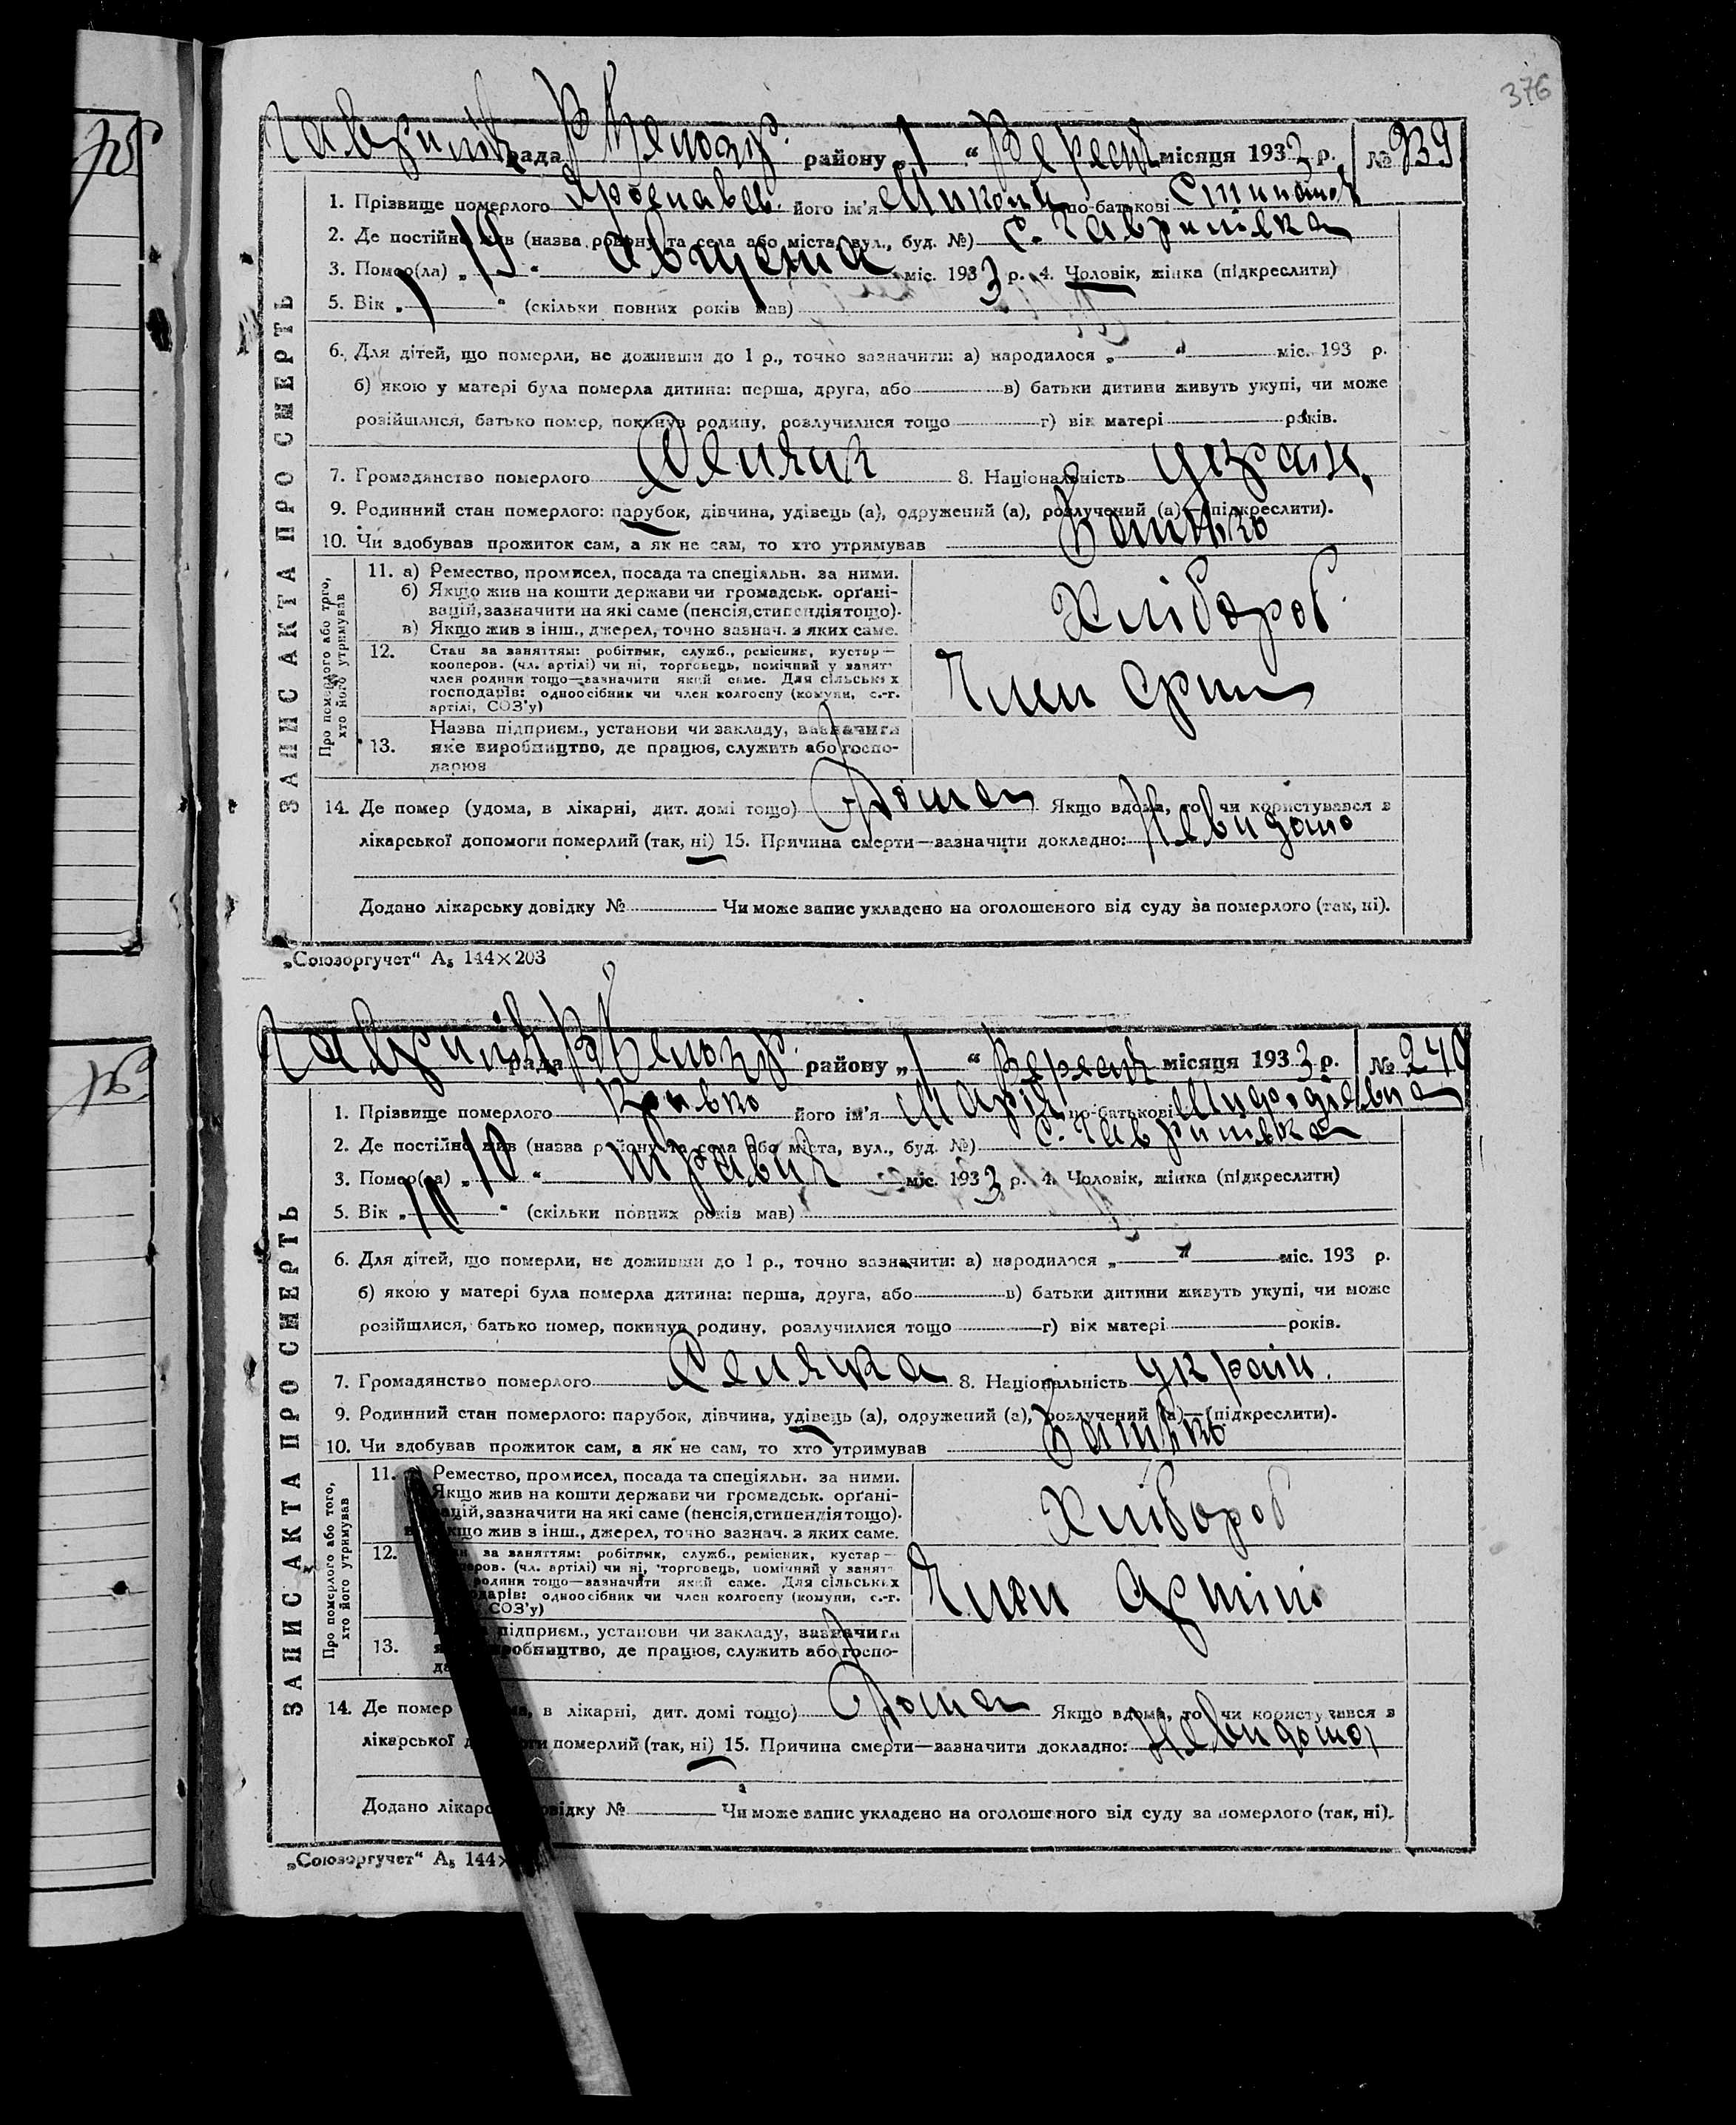 376
Гаврилів рада р. району „1“ Вересня місяця 1933 р. № 239
ЗАПИС АКТА ПРО СМЕРТЬ
1. Прізвище померлого Ярославец. його ім'я Микола по-батькові Степанов
2. Де постійно жив (назва району та села або міста, вул., буд. №) с. Гаврилівка
3. Помер(ла) „19“ августа міс. 1933 р. 4. Чоловік, жінка (підкреслити)
5. Вік „1“ (скільки повних років мав)
6. Для дітей, що померли, не доживши до 1 р., точно зазначити: а) народилося „ “ міс. 193 р.
б) якою у матері була померла дитина: перша, друга, або в) батьки дитини живуть укупі, чи може
розійшлися, батько помер, покинув родину, розлучилися тощо г) вік матері років.
7. Громадянство померлого Селянин 8. Національність україн,
9. Родинний стан померлого: парубок, дівчина, удівець (а), одружений (а), розлучений (а)—(підкреслити).
10. Чи здобував прожиток сам, а як не сам, то хто утримував Батько
Про померлого або того, хто його утримував
11. а) Ремество, промисел, посада та спеціяльн. за ними.
б) Якщо жив на кошти держави чи громадськ. орґані-
зацій, зазначити на які саме (пенсія, стипендія тощо).
в) Якщо жив з інш., джерел, точно зазнач. з яких саме.
Хлібороб.
12. Стан за заняттям: робітник, служб., ремісник, кустар—
кооперов. (чл. артілі) чи ні, торговець, помічний у занятт
член родини тощо—зазначити який саме. Для сільських
господарів: одноосібник чи член колгоспу (комуни, с.-г.
артілі, СОЗ'у)
Член
13. Назва підприєм., установи чи закладу, зазначити
яке виробництво, де працює, служить або госпо-
дарює
14. Де помер (удома, в лікарні, дит. домі тощо) Дома Якщо вдома, то чи користувався з
лікарської допомоги померлий (так, ні) 15. Причина смерти—зазначити докладно: Невидомо
Додано лікарську довідку № Чи може запис укладено на оголошеного від суду за померлого (так, ні).
„Союзоргучет“ А₅ 144×203
Гаврилів рада р. району „1“ Вересня місяця 1933 р. № 240
ЗАПИС АКТА ПРО СМЕРТЬ
1. Прізвище померлого Кривко його ім'я Марія по-батькові Мифодіевна
2. Де постійно жив (назва району та села або міста, вул., буд. №) с. Гаврилівка
3. Помер(ла) „10“ травня міс. 1933 р. 4. Чоловік, жінка (підкреслити)
5. Вік „ “ (скільки повних років мав)
6. Для дітей, що померли, не доживши до 1 р., точно зазначити: а) народилося „ “ міс. 193 р.
б) якою у матері була померла дитина: перша, друга, або в) батьки дитини живуть укупі, чи може
розійшлися, батько помер, покинув родину, розлучилися тощо г) вік матері років.
7. Громадянство померлого Селянка 8. Національність україн.
9. Родинний стан померлого: парубок, дівчина, удівець (а), одружений (а), розлучений (а)—(підкреслити).
10. Чи здобував прожиток сам, а як не сам, то хто утримував Батько
Про померлого або того, хто його утримував
11. Ремество, промисел, посада та спеціяльн. за ними.
Якщо жив на кошти держави чи громадськ. орґані-
зацій, зазначити на які саме (пенсія, стипендія тощо).
Якщо жив з інш., джерел, точно зазнач. з яких саме.
Хлібороб
12. за заняттям: робітник, служб., ремісник, кустар—
(чл. артілі) чи ні, торговець, помічний у занятт
родини тощо—зазначити який саме. Для сільських
одноосібник чи член колгоспу (комуни, с.-г.
СОЗ'у)
Член Артілі
13. підприєм., установи чи закладу, зазначити
виробництво, де працює, служить або госпо-
14. Де помер в лікарні, дит. домі тощо) Дома Якщо вдома, то чи користувався з
лікарської померлий (так, ні) 15. Причина смерти—зазначити докладно: Невидомо
Додано довідку № Чи може запис укладено на оголошеного від суду за померлого (так, ні).
„Союзоргучет“ А₅ 144×